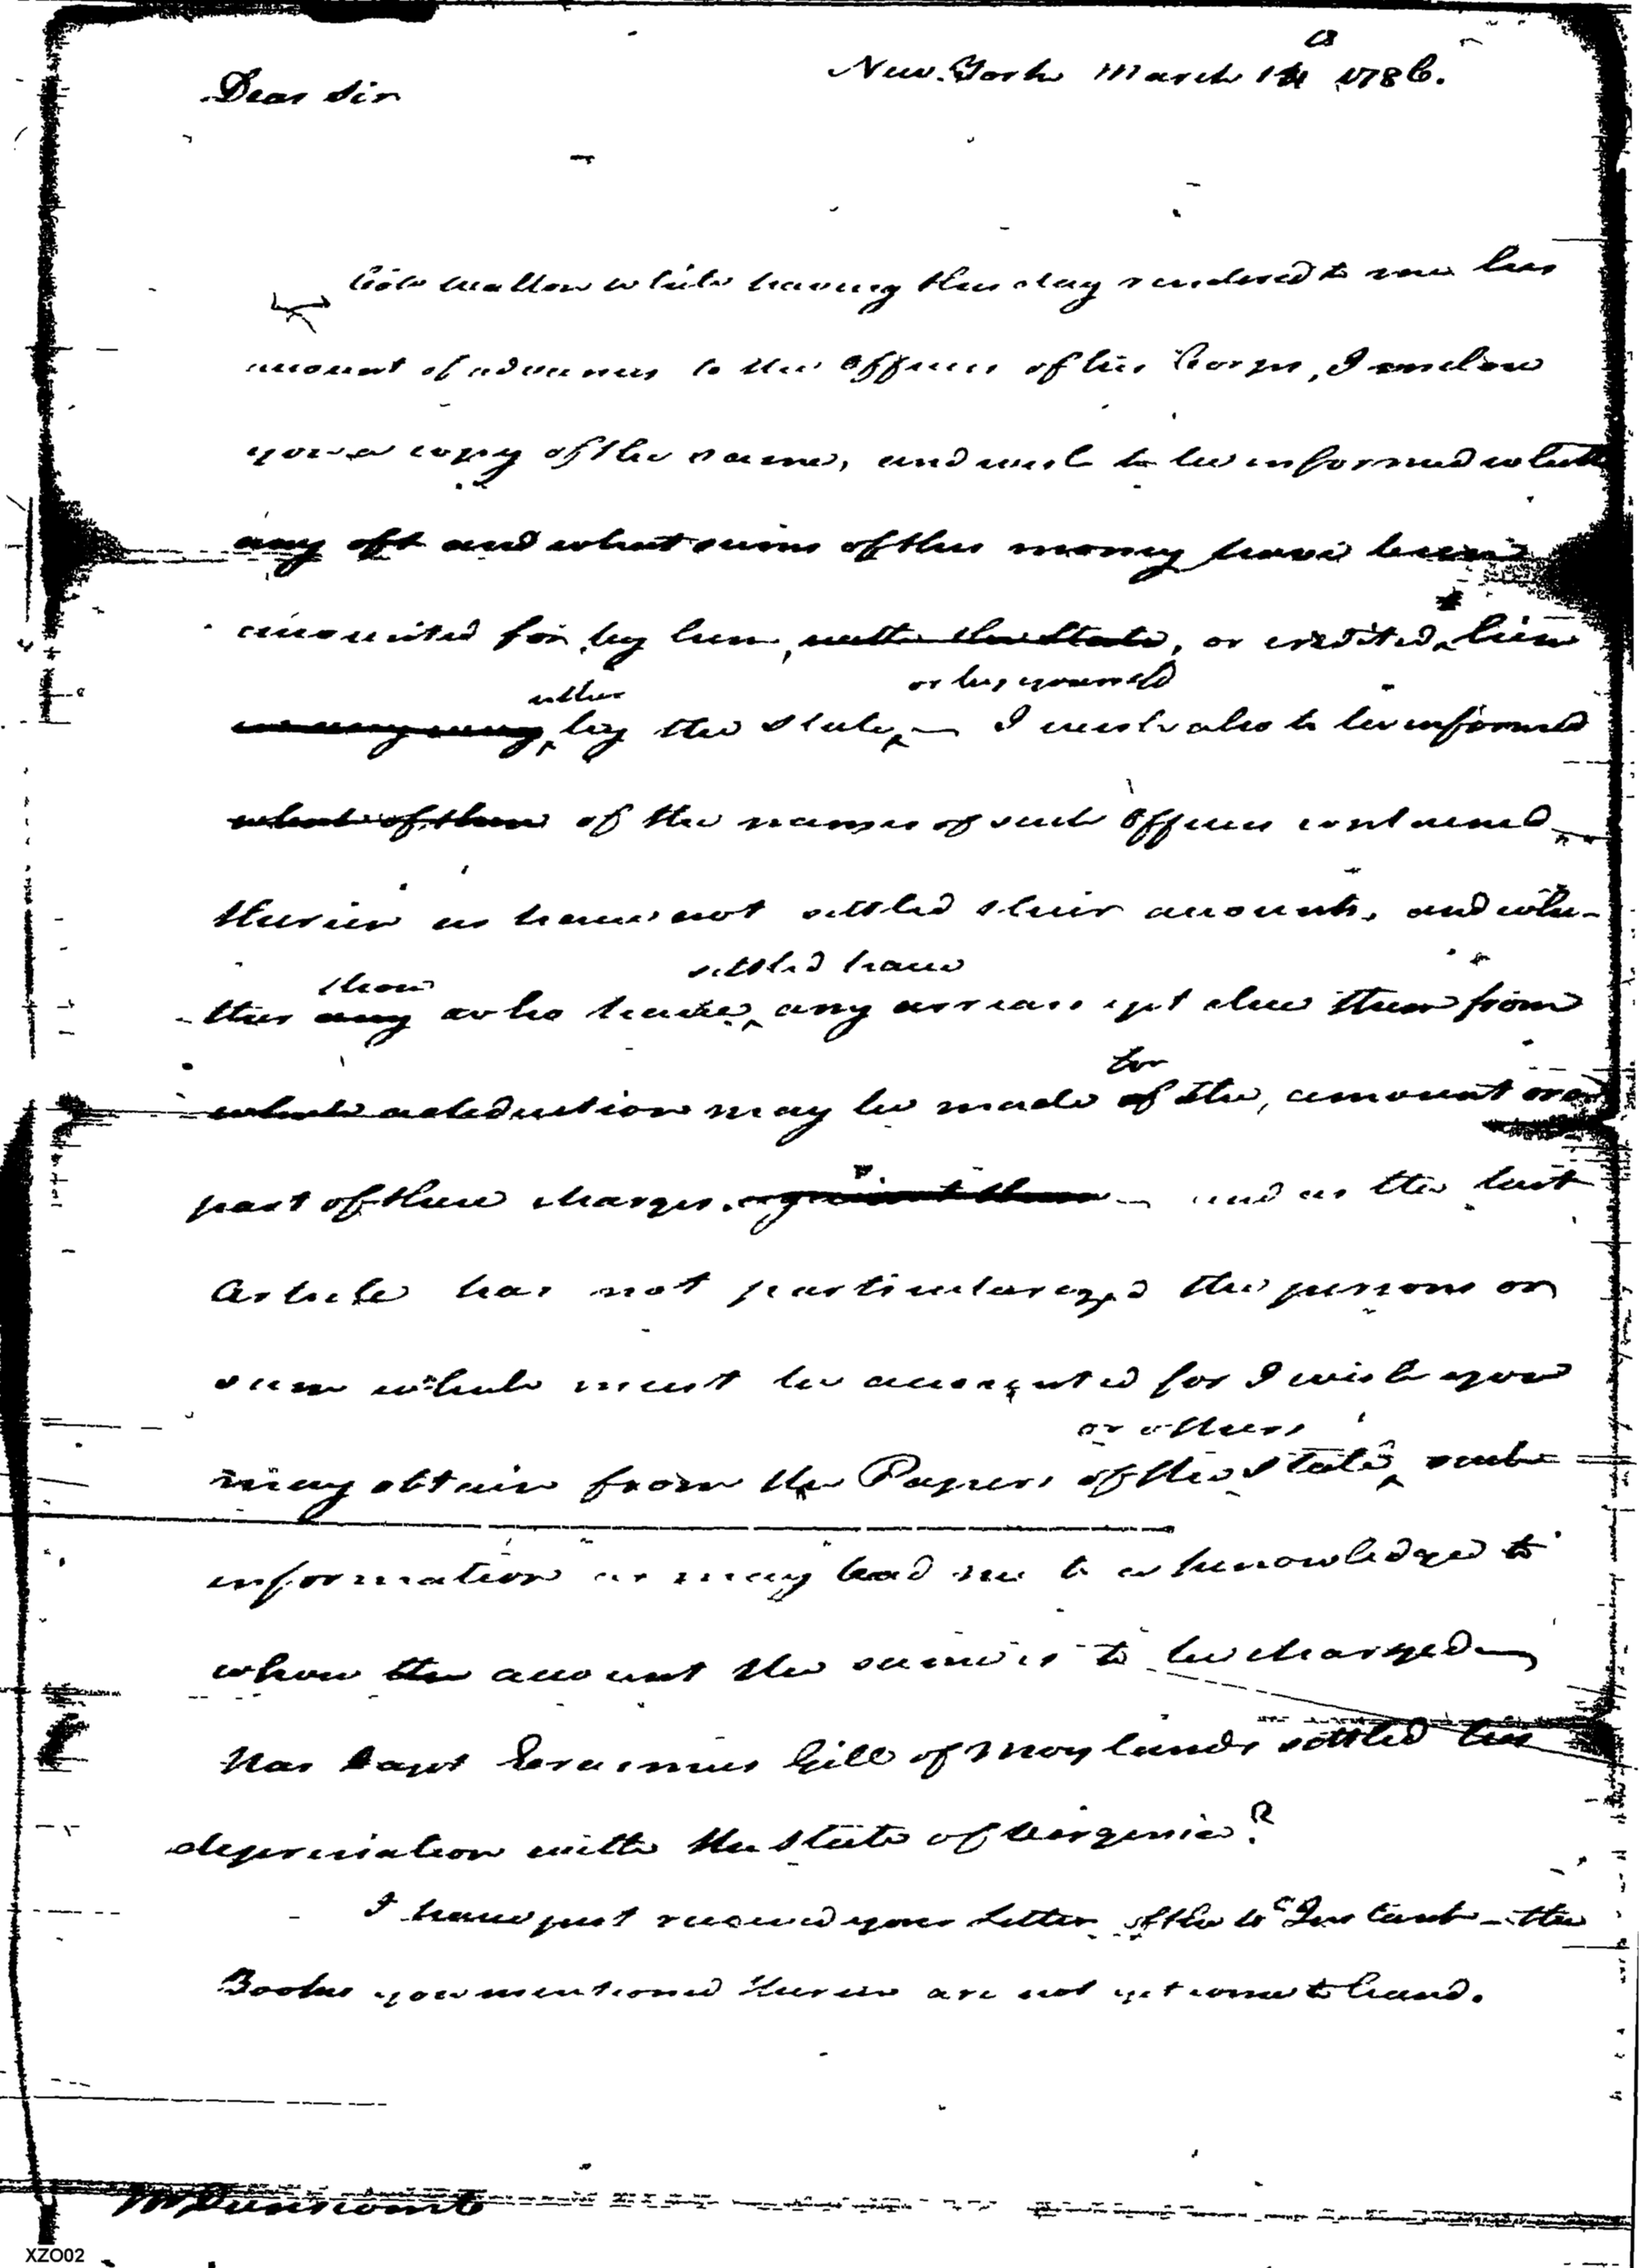 New York March 14 1786.
Dear Sir
Colo Walton White having this day rendered to me his
account of advances to the Officers of his Corps, I enclose
you a copy of the same, and wish to be informed whether
any oft and what sums of this money have been
accounted for by him, with the State, or credited him
either or by yourself
by the State, — I wish also to be informed
what of them of the names of such Officers contained
therein as have not settled their accounts, and whe-
those settled have
ther any who have any arrears yet due them from
for
which a deduction may be made of the, amount or a
part of these charges. against them — and as the last
Article has not particularized the persons or
sum which must be accounted for I wish you
or others
may obtain from the Papers of the State, such
information as may lead me to a knowledge to
whose the account the same is to be charged —
Has Capt Erasmus Gill of Moylands settled his
depreciation with the State of Virginia?
I have just received your Letter of the Instant — the
Books you mentioned therein are not yet come to hand.
Mr Dunscomb
XZO02